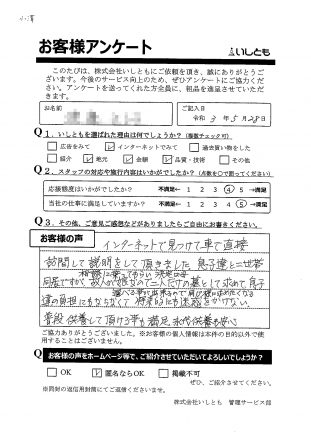 お客様アンケート
いしとも
このたびは、株式会社いしともにご依頼を頂き、誠にありがとうご
ざいます。今後のサービス向上のため、ぜひアンケートにご協力くだ
さい。アンケートを送ってくれた方全員に、粗品を進呈させていただ
きます。
お名前
ご記入日
令和 3年 5月28日
Q1.いしともを選ばれた理由は何でしょうか?(複数チェック可)
広告をみて
インターネットでみて
過去買い物をした
紹介
地元
金額
品質・技術
その他
Q2.スタッフの対応や施行内容はいかがでしたか?(点数を〇で囲ってください)
応接態度はいかがでしたか?
不満足← 1 2 3 4 5 →満足
当社の仕事に満足していますか?
不満足← 1 2 3 4 5 →満足
Q3.その他、ご意見ご感想などがありましたらご自由にお書きください。
お客様の声
インターネットで見つけて車で直接
訪問して説明をして頂きました 息子達と二世帯
同居ですが
と息子
達の負担にもならなくて 将来的にも迷惑をかけない。
普段 供養して頂ける事も満足 永代供養も安心
ご協力ありがとうございました。※お客様の個人情報は本件の目的以外で使
用することはございません。
Q お客様の声をホームページ等で、ご紹介させていただいてよろしいでしょうか?
OK
匿名ならOK
掲載不可
ぜひ、ご紹介させてください。
※同封の返信用封筒にてご返信くださいませ。
株式会社いしとも 管理サービス部